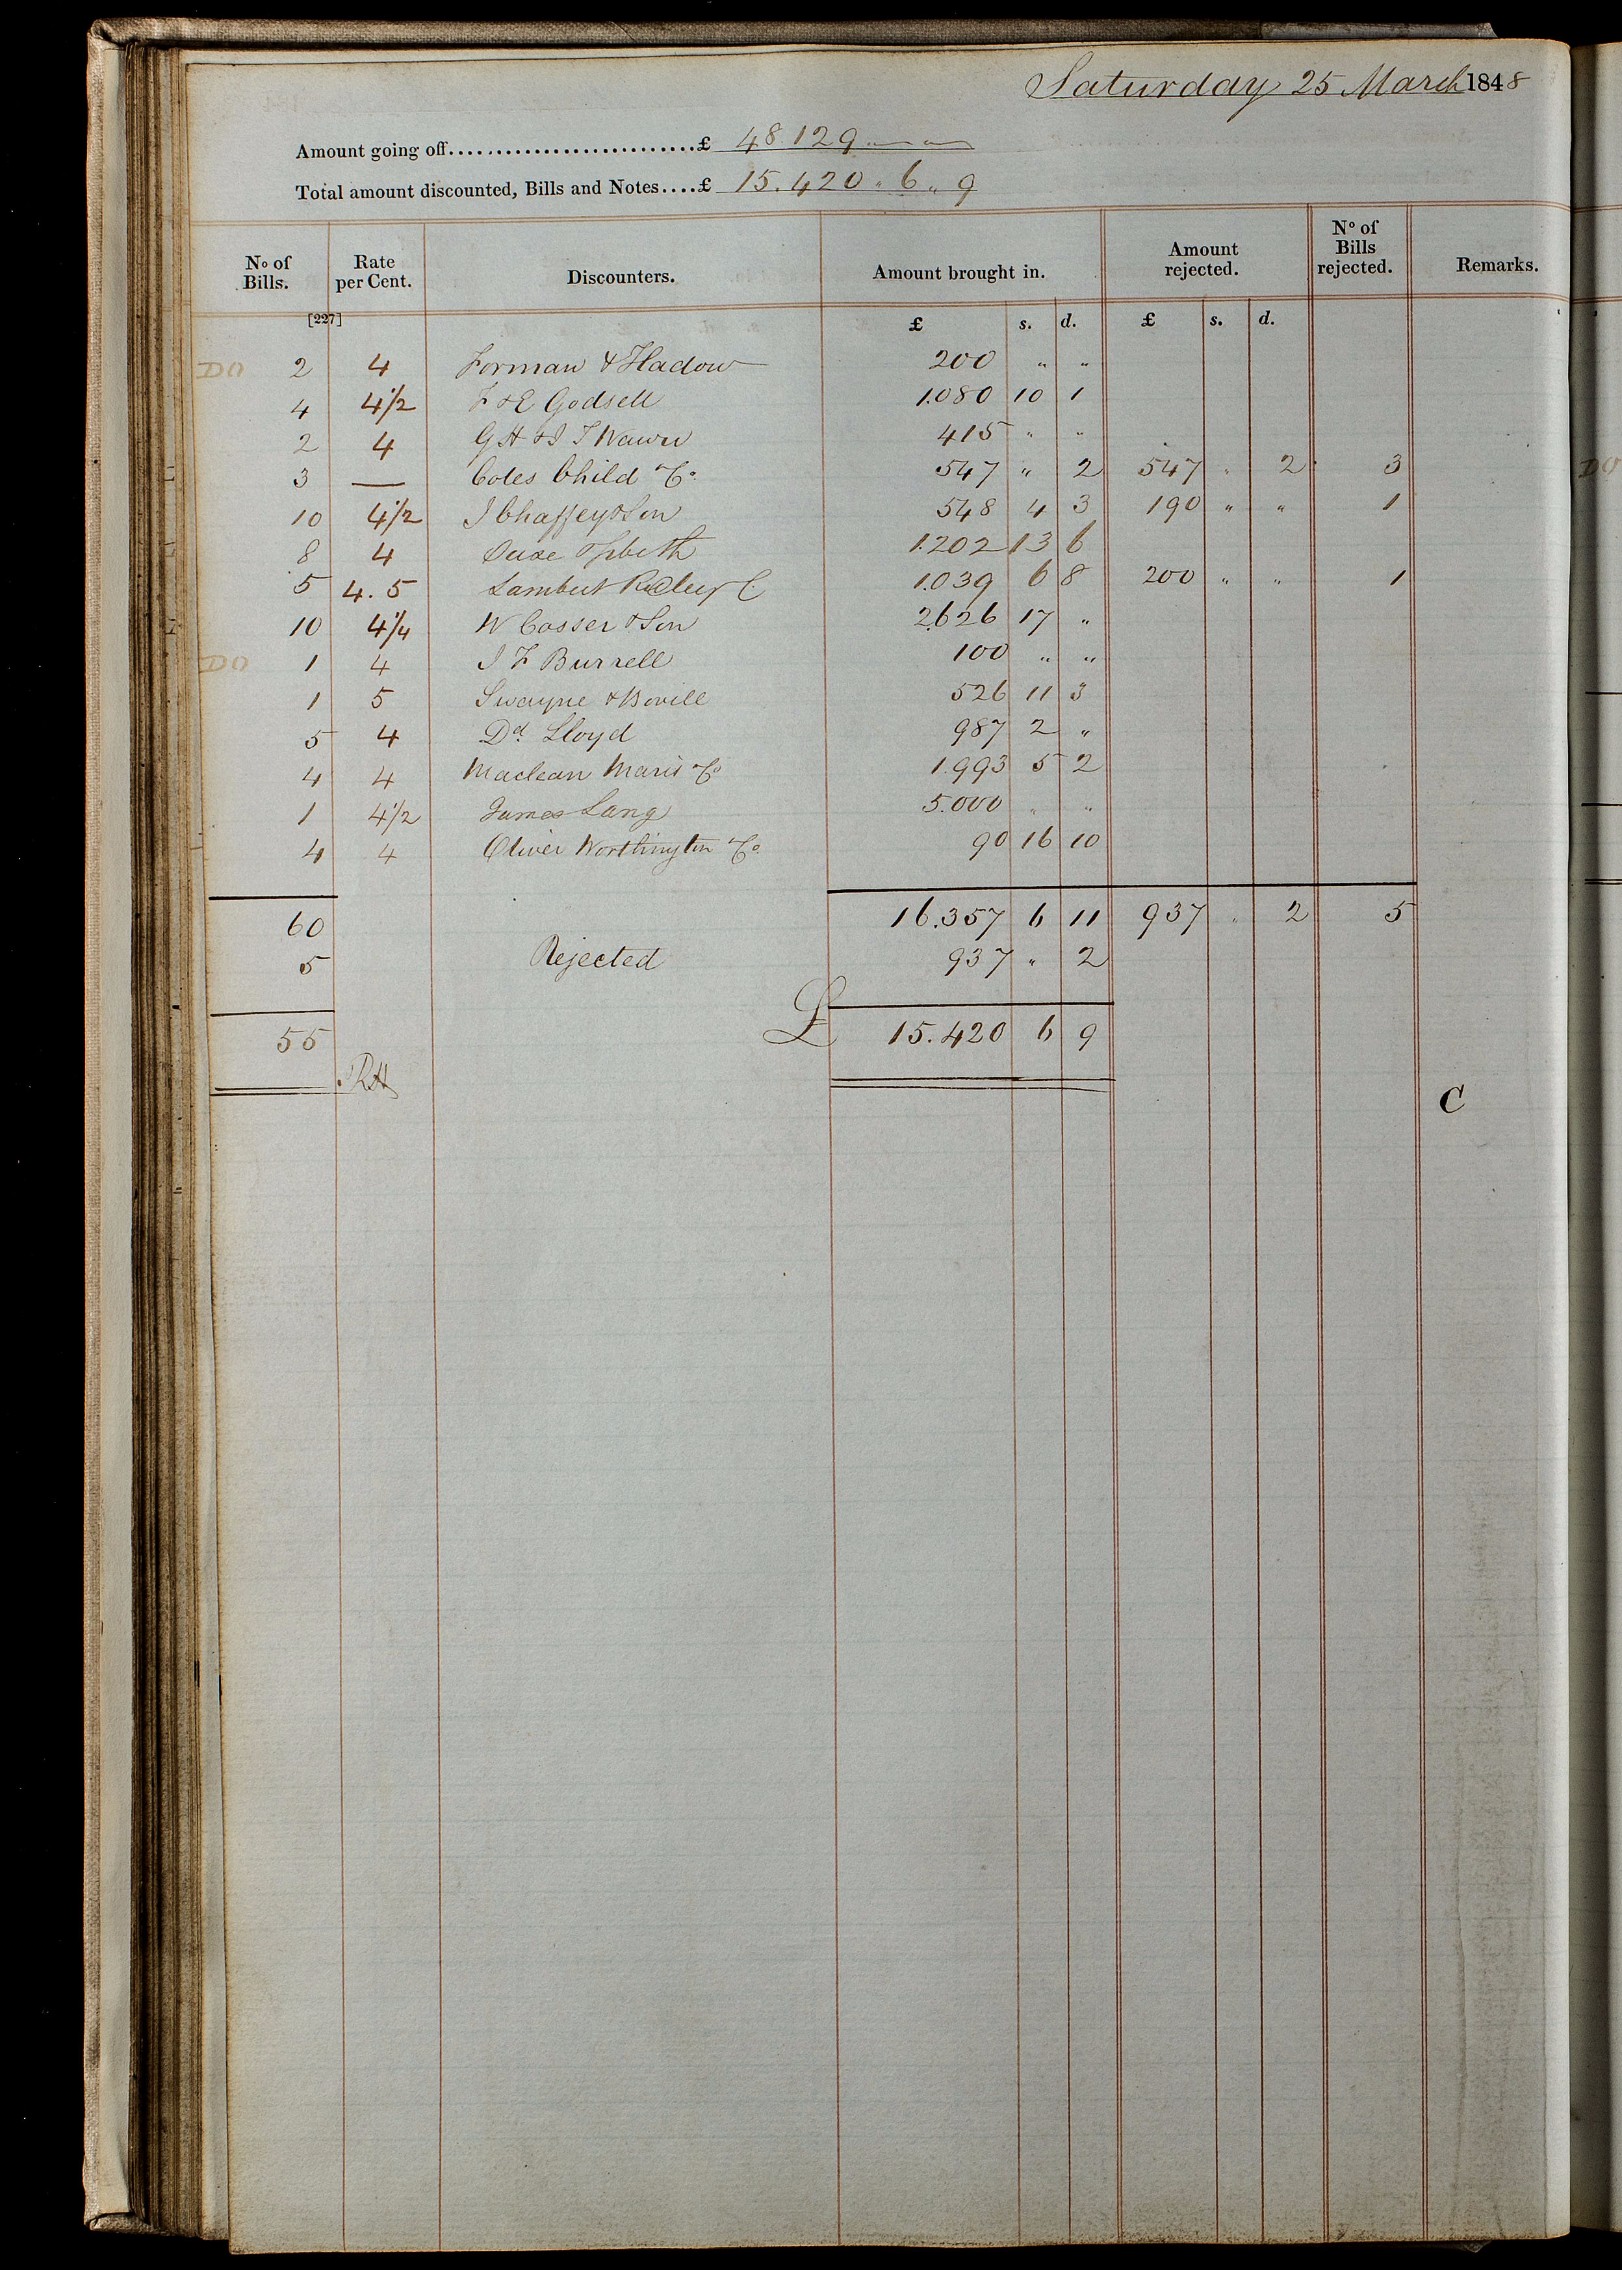 Saturday 25 March 1848
Amount going off..........................£ 48.129 " "
Total amount discounted, Bills and Notes....£ 15.420 " 6 " 9
No of Bills. Rate per Cent. Discounters. Amount brought in. Amount rejected. No of Bills rejected. Remarks.
[227] £ s. d. £ s. d.
DO 2 4 Forman & Hadow 200 " "
4 4 1/2 F & E Godsell 1.080 10 1
2 4 G H & J T 415 " "
3 — Coles Child & Co 547 " 2 547 " 2 3 DO
10 4 1/2 J Chaffey & Son 548 4 3 190 " " 1
8 4 1.202 13 6
5 4.5 Lambert Co 1.039 6 8 200 " " 1
10 4 1/4 W Casser & Son 2.626 17 "
DO 1 4 J F Burrell 100 " "
1 5 Swayne & Bovill 526 11 3
5 4 Dd Lloyd 987 2 "
4 4 Maclean Maris & Co 1.993 5 2
1 4 1/2 James Lang 5.000 " "
4 4 Oliver Worthington & Co 90 16 10
60 16.357 6 11 937 " 2 5
5 Rejected 937 " 2
55 £ 15.420 6 9
RH
C